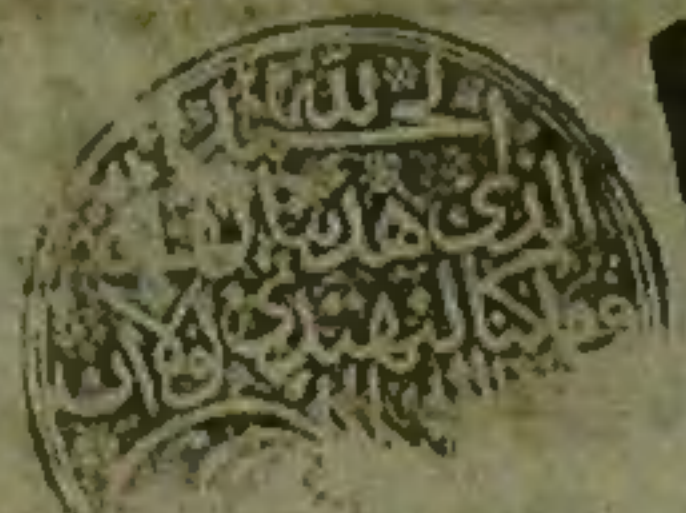 الحمد لله
الذى هدينا لهذا
وما كنا لنهتدى لولا ان